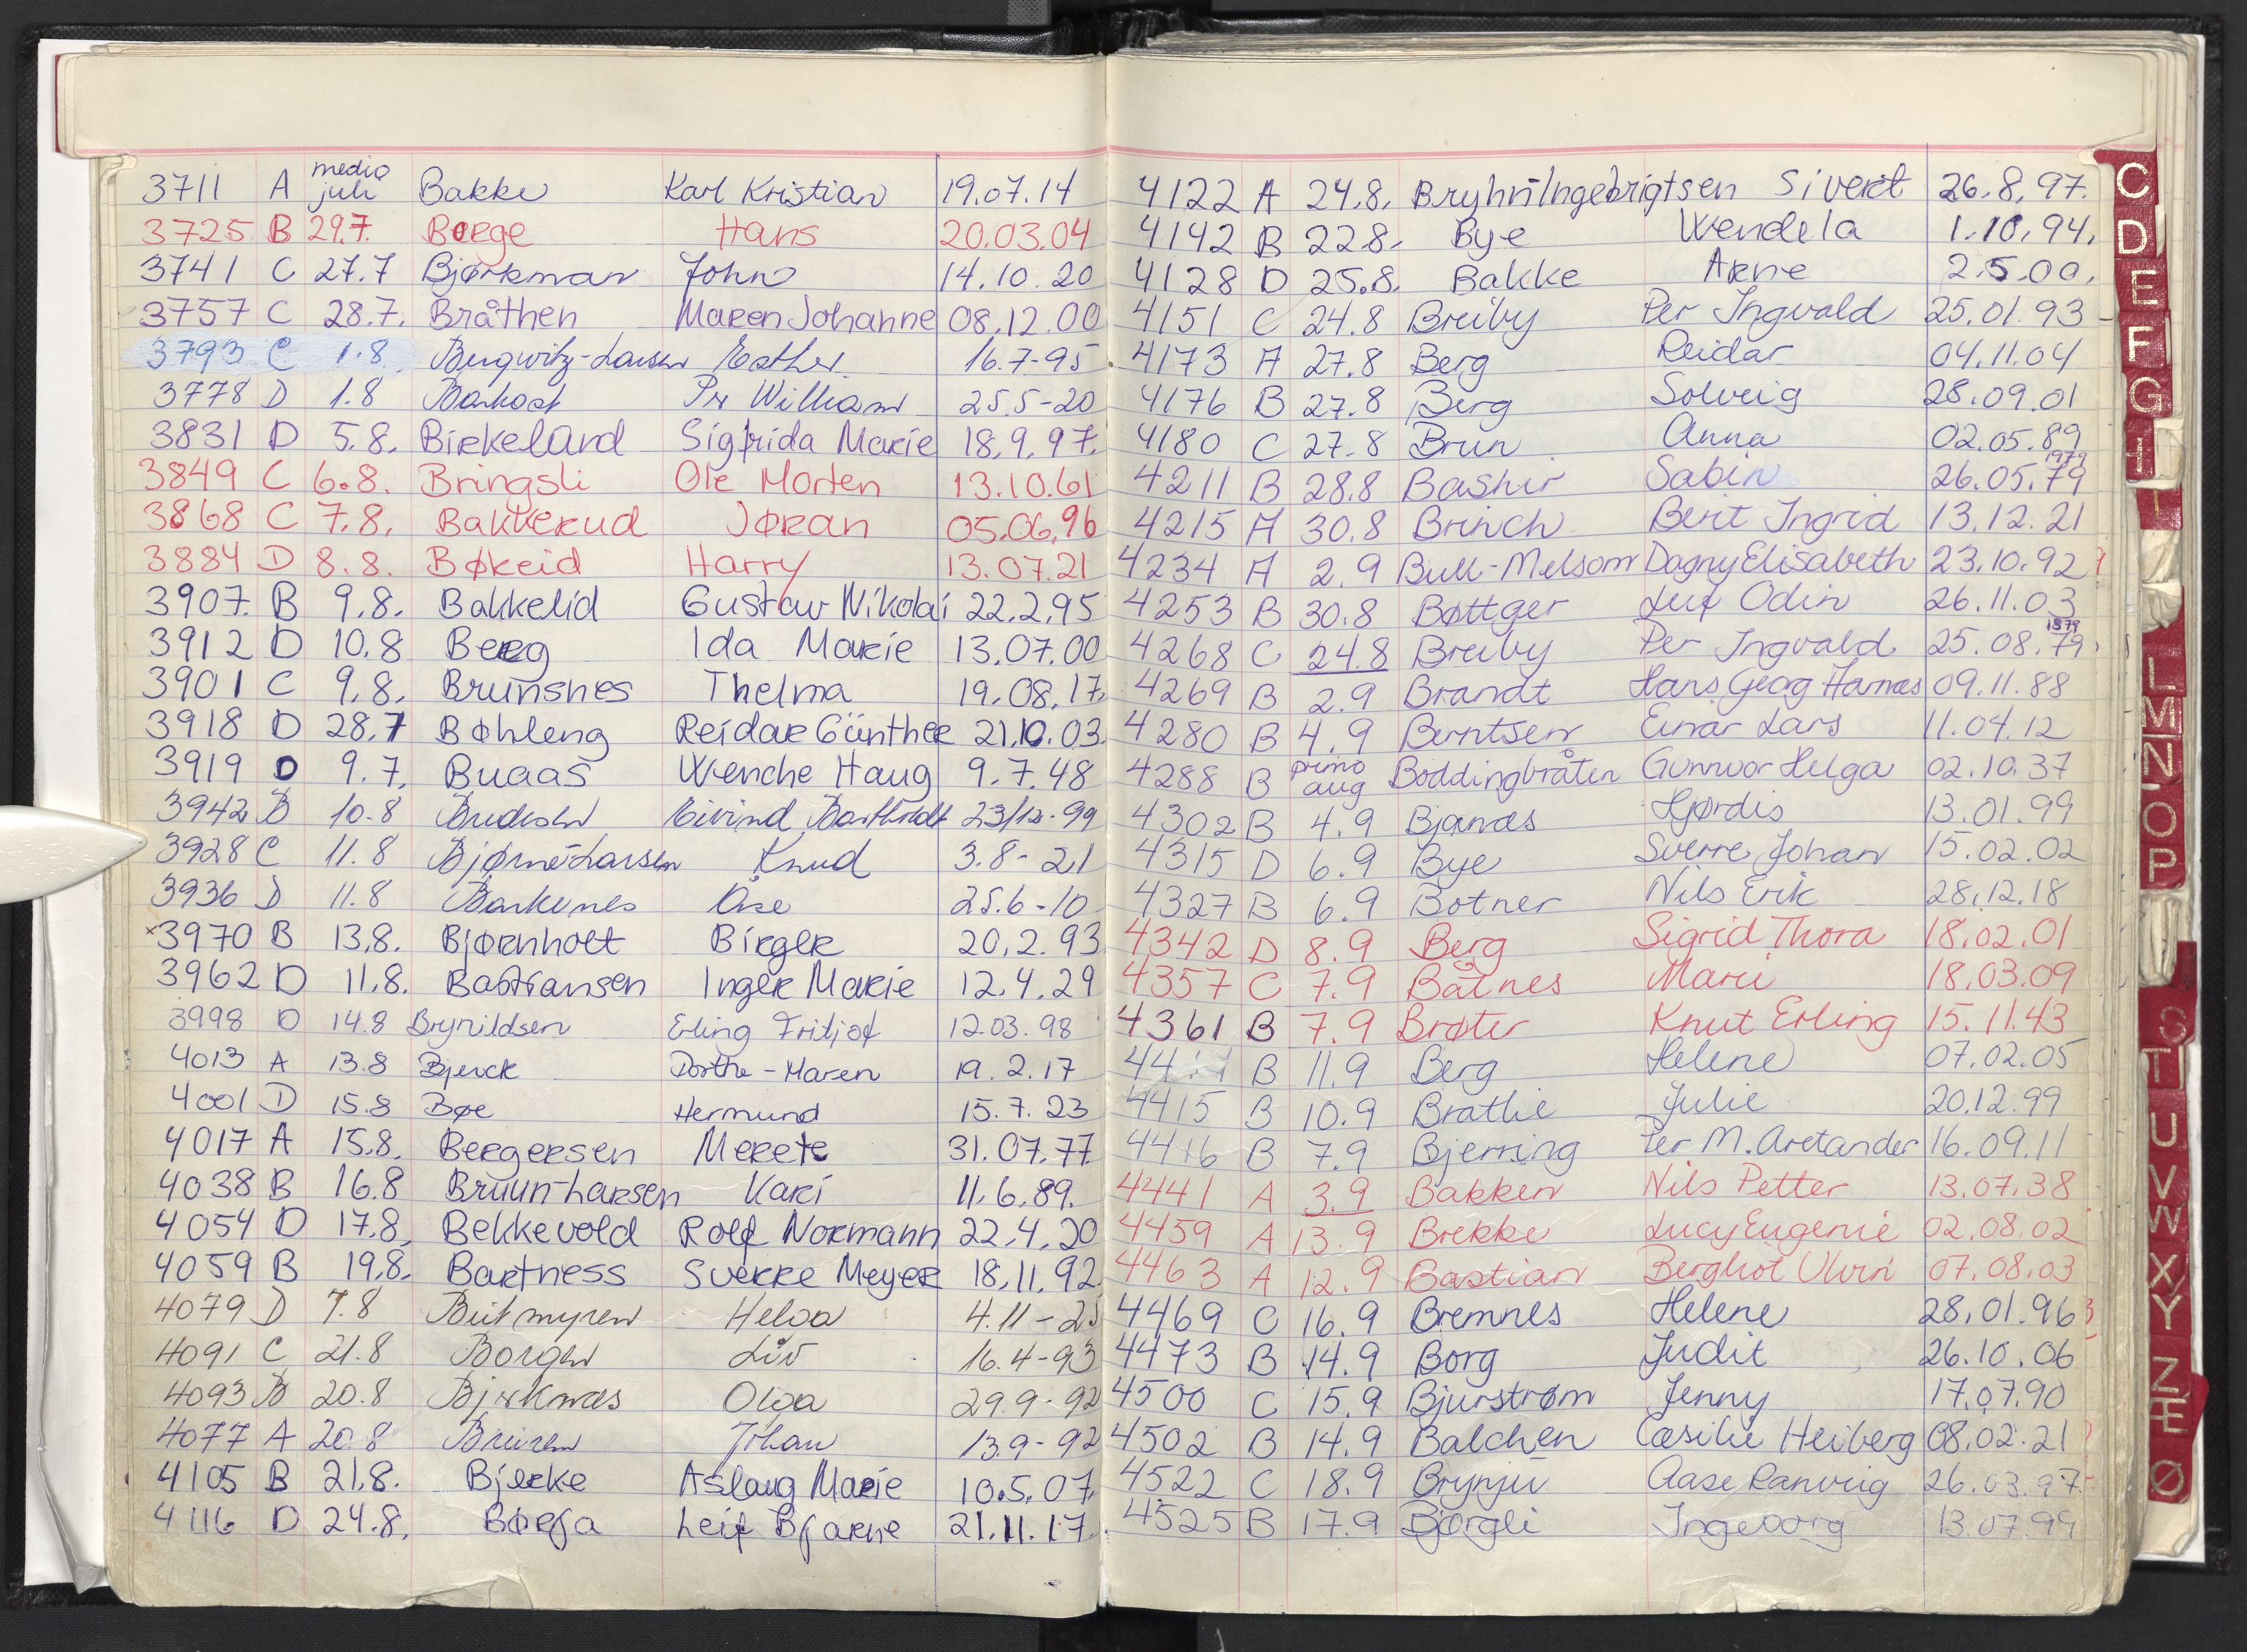 medio
3711 A juli Bakke Karl Kristian 19.07.14
3725 B 29.7. Borge Hans 20.03.04
3741 C 27.7 Bjørkman John 14.10.20
3757 C 28.7. Bråthen Maren Johanne 08.12.00
3793 C 1.8. Bergwitz-Larsen Esther. 16.7-95
3778 D 1.8 Per William 25.5-20
3831 D 5.8. Birkeland Sigfrida Marie 18.9.97.
3849 C 6.8. Bringsli Ole Morten 13.10.61
3868 C 7.8. Bakkerud Jøran 05.06.96
3884 D 8.8. Bøkeid Harry 13.07.21
3907. B 9.8. Bakkelid Gustav Nikolai 22.2.95
3912 D 10.8 Berg Ida Marie 13.07.00
3901 C 9.8. Brunsnes Thelma 19.08.17.
3918 D 28.7 Bøhleng Reidar Günther 21.10.03.
3919 D 9.7. Buaas Wenche Haug 9.7.48
3942 B 10.8 Eivind 23/12.99
3928 C 11.8 Bjørne-Larsen Knud 3.8-21
3936 D 11.8 Barkenes Åse 25.6-10
x3970 B 13.8. Bjørnholt Birger 20.2.93
3962 D 11.8. Bastiansen Inger Marie 12.4.29
3998 D 14.8 Brynildsen Erling Fritjof 12.03.98
4013 A 13.8 Bjerck Dorthe-Maren 19.2.17
4001 D 15.8 Bøe Hermund 15.7.23
4017 A 15.8. Bergersen Merete 31.07.77
4038 B 16.8 Bruun-Larsen Kari 11.6.89.
4054 D 17.8. Bekkevold Rolf Normann 22.4.20
4059 B 19.8. Bartness Sverre Meyer 18.11.92
4079 D 7.8 Helga 4.11-25
4091 C 21.8 Borgen Liv 16.4-93
4093 B 20.8 Bjerknæs Olga 29.9-92
4077 A 20.8 Johan 13.9-92
4105 B 21.8. Bjerke Aslaug Marie 10.5.07.
4116 D 24.8. Børja Leif Bjarne 21.11.17.
4122 A 24.8. Bryhni Ingebrigtsen Sivert 26.8.97.
4142 B 22.8. Bye Wendela 1.10.94.
4128 D 25.8. Bakke Arne 2.5.00.
4151 C 24.8 Breiby Per Ingvald 25.01.93 -
4173 A 27.8 Berg Reidar 04.11.04
4176 B 27.8 Berg Solveig 28.09.01
4180 C 27.8 Brun Anna 02.05.89
1979
4211 B 28.8 Bashir Sabin 26.05.79
4215 A 30.8 Brinch Berit Ingrid 13.12.21
4234 A 2.9 Bull-Melsom Dagny Elisabeth 23.10.92
4253 B 30.8 Bøttger Leif Odin 26.11.03
1879
4268 C 24.8 Breiby Per Ingvald 25.08.79
4269 B 2.9 Brandt Hans Georg Hannes 09.11.88
4280 B 4.9 Berntsen Einar Lars 11.04.12
primo
4288 B aug Böddingbråten Gunnvor Helga 02.10.37
4302 B 4.9 Bjanæs Hjørdis 13.01.99
4315 D 6.9 Bye Sverre Johan 15.02.02
4327 B 6.9 Botner Nils Erik 28.12.18
4342 D 8.9 Berg Sigrid Thora 18.02.01
4357 C 7.9 Båtnes Mari 18.03.09
4361 B 7.9 Brøter Knut Erling 15.11.43
44 B 11.9 Berg Helene 07.02.05
4415 B 10.9 Brathe Julie 20.12.99
4416 B 7.9 Bjerring Per M. Aretander 16.09.11
4441 A 3.9 Bakken Nils Petter 13.07.38
4459 A 13.9 Brekke Lucy Eugenie 02.08.02
4463 A 12.9 Bastian Bergliot Ulvin 07.08.03
4469 C 16.9 Bremnes Helene 28.01.96
4473 B 14.9 Borg Judit 26.10.06
4500 C 15.9 Bjurstrøm Jenny 17.07.90
4502 B 14.9 Balchen Cæsilie Heiberg 08.02.21
4522 C 18.9 Brynju Aase Ranveig 26.03.97
4525 B 17.9 Børgli Ingeborg 13.07.99
C
D
E
F
G
H
I
L
M
N
O
P
S
T
U
V
W
X
Y
Z
Æ
Ø